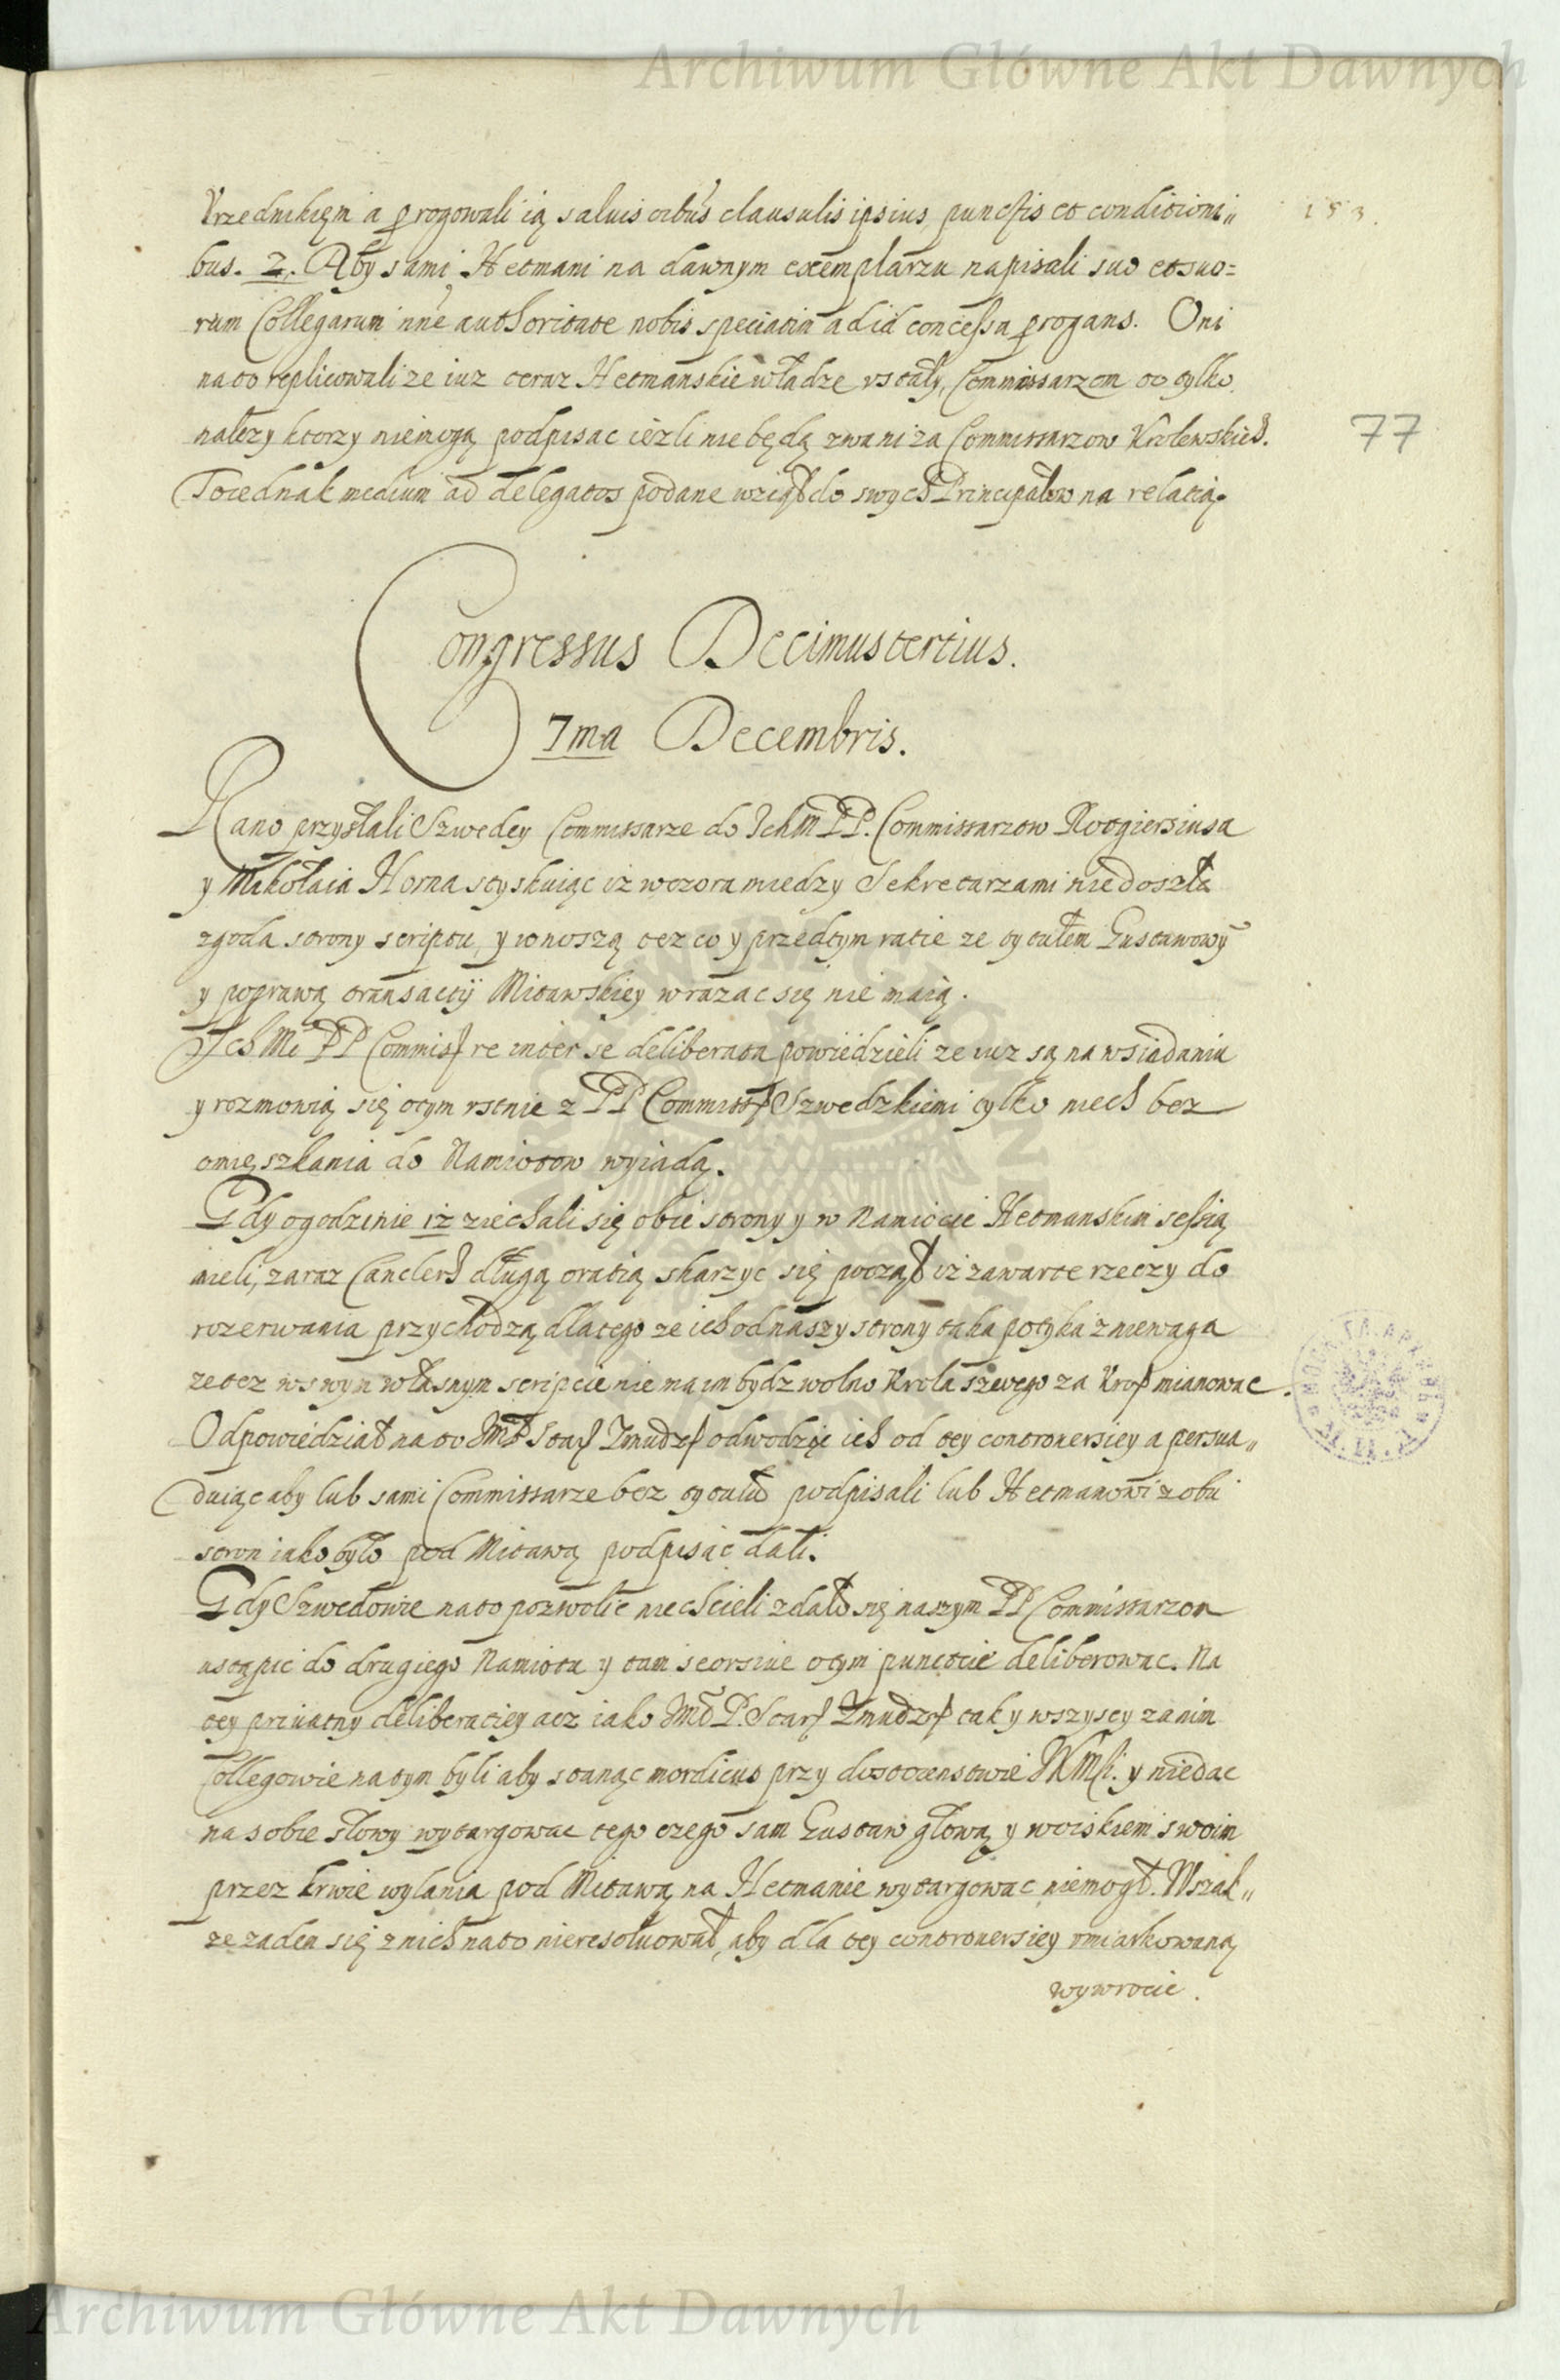 Archiwum Główne Akt Dawnych
153.
Urzednikięm a progowali ią saluis oibus clausulis ipsius punctis et conditioni„
bus. 2. Aby sami Hetmani na dawnym exemplarzu napisali suo et suo=
rum Collegarum nne authoritate nobis speciatim ad id concessa progans. Oni
na to replicowali ze iuz teraz Hetmanskie władze ustały, Commissarzom to tylko
nalezy ktorzy niemogą podpisac iezli nie będą zwani za Commissarzow Krolewskich.
77
To iednak medium ad delegatos podane wziął do swych Principałow na relatią.
Congressus Decimustertius.
7ma Decembris.
Rano przysłali Szwedcy Commissarze do Ich M PP. Commissarzow Rotgiersiusa
y Mikołaia Horna styskuiąc iz wczora miedzy Sekretarzami niedoszła
zgoda strony scriptu, y wnoszą tez co y przedtym ratie ze tytułem Gustawowy
y poprawą transactij Mitawskiey wrazac się nie maią.
Ich Mc PP Commissre inter se deliberata powiedzieli ze iuz są na wsiadaniu
y rozmowią się otym ustnie z PP Commiss Szwedzkiemi tylko niech bez
omięszkania do Namiotow wyiadą.
Gdy ogodzinie 12 ziechali się obie strony y w Namiocie Hetmanskim sessią
mieli, zaraz Canclerz długą oratią skarzyc się począł iz zawarte rzeczy do
rozerwania przychodzą dlatego ze ich od naszy strony taka potyka zniewaga
ze tez w swym własnym scripcie nie ma im bydz wolno Krola swego za Kro mianowac.
Odpowiedział na to Jmć Star Zmudz odwodząc ich od tey controuersiey a persua„
duiąc aby lub sami Commissarze bez tytułu podpisali lub Hetmanowi z obu
stron iako było pod Mitawą podpisac dali.
Gdy Szwedowie na to pozwolic niechcieli zdało się naszym PP Commissarzom
ustąpic do drugiego Namiotu y tam seorsiue otym punctcie deliberowac. Na
tey priuatny deliberatiey acz iako Jmć P. Star Zmudz tak y wszyscy zanim
Collegowie na tym byli aby stanąc mordicus przy dostoienstwie JKMsci. y niedac
na sobie słowy wytargowac tego czego sam Gustaw głową y woiskiem swoim
przez krwie wylania pod Mitawą na Hetmanie wytargowac niemogł. Wszak„
ze zaden się z nich na to nieresoluował, aby dla tey controuersiey umiarkowaną
wywrocic.
Archiwum Główne Akt Dawnych